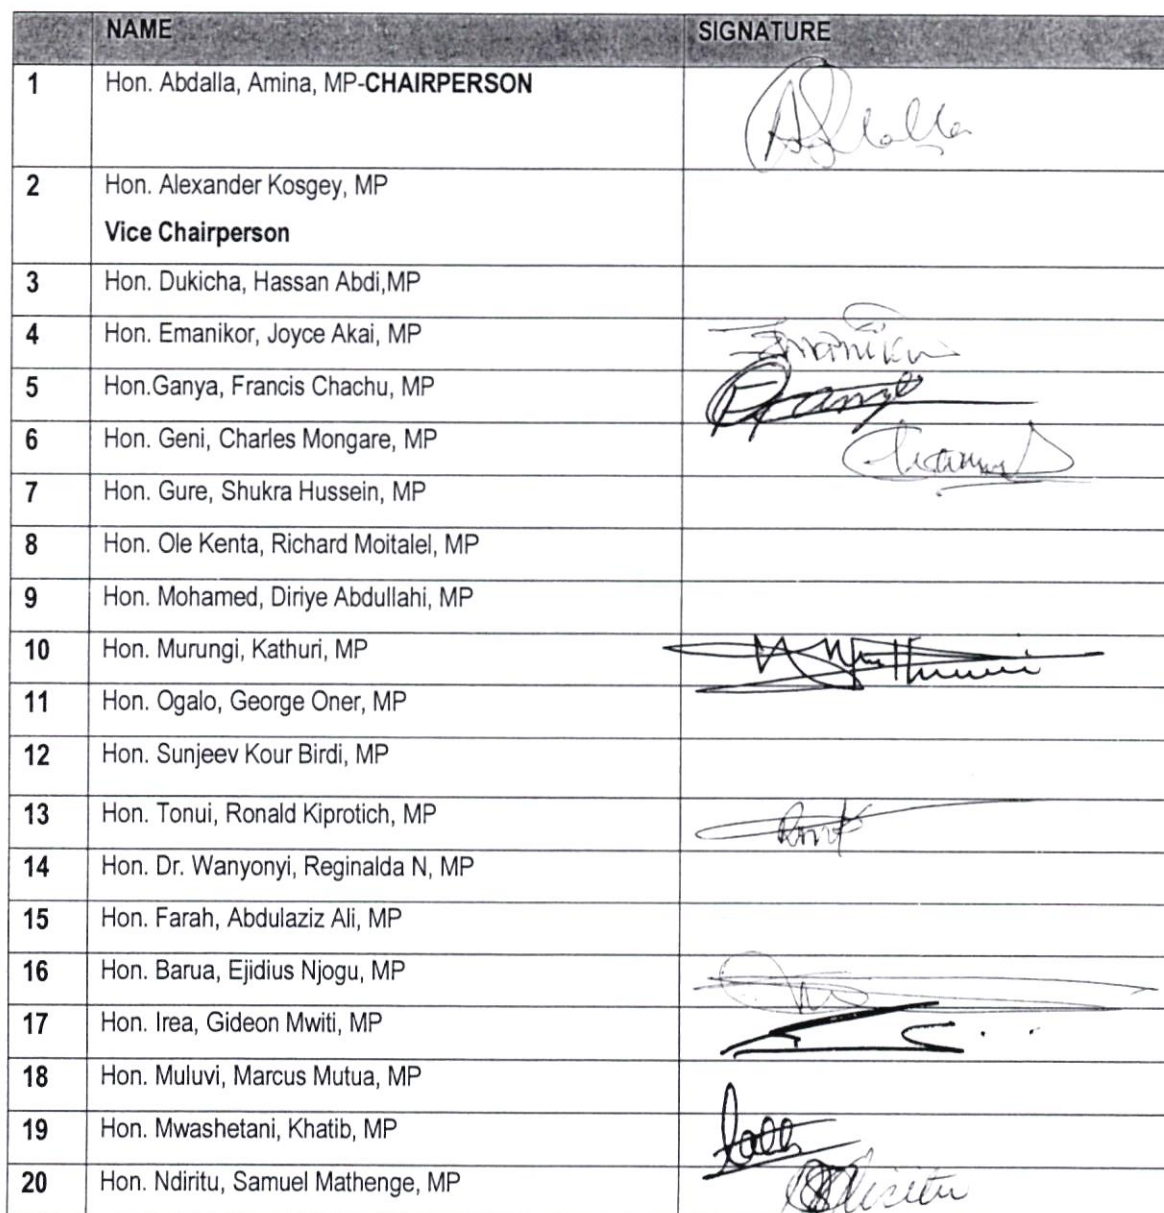 NAME SIGNATURE
1 Hon. Abdalla, Amina, MP-CHAIRPERSON
2 Hon. Alexander Kosgey, MP
Vice Chairperson
3 Hon. Dukicha, Hassan Abdi,MP
4 Hon. Emanikor, Joyce Akai, MP
5 Hon.Ganya, Francis Chachu, MP
6 Hon. Geni, Charles Mongare, MP
7 Hon. Gure, Shukra Hussein, MP
8 Hon. Ole Kenta, Richard Moitalel, MP
9 Hon. Mohamed, Diriye Abdullahi, MP
10 Hon. Murungi, Kathuri, MP
11 Hon. Ogalo, George Oner, MP
12 Hon. Sunjeev Kour Birdi, MP
13 Hon. Tonui, Ronald Kiprotich, MP
14 Hon. Dr. Wanyonyi, Reginalda N, MP
15 Hon. Farah, Abdulaziz Ali, MP
16 Hon. Barua, Ejidius Njogu, MP
17 Hon. Irea, Gideon Mwiti, MP
18 Hon. Muluvi, Marcus Mutua, MP
19 Hon. Mwashetani, Khatib, MP
20 Hon. Ndiritu, Samuel Mathenge, MP